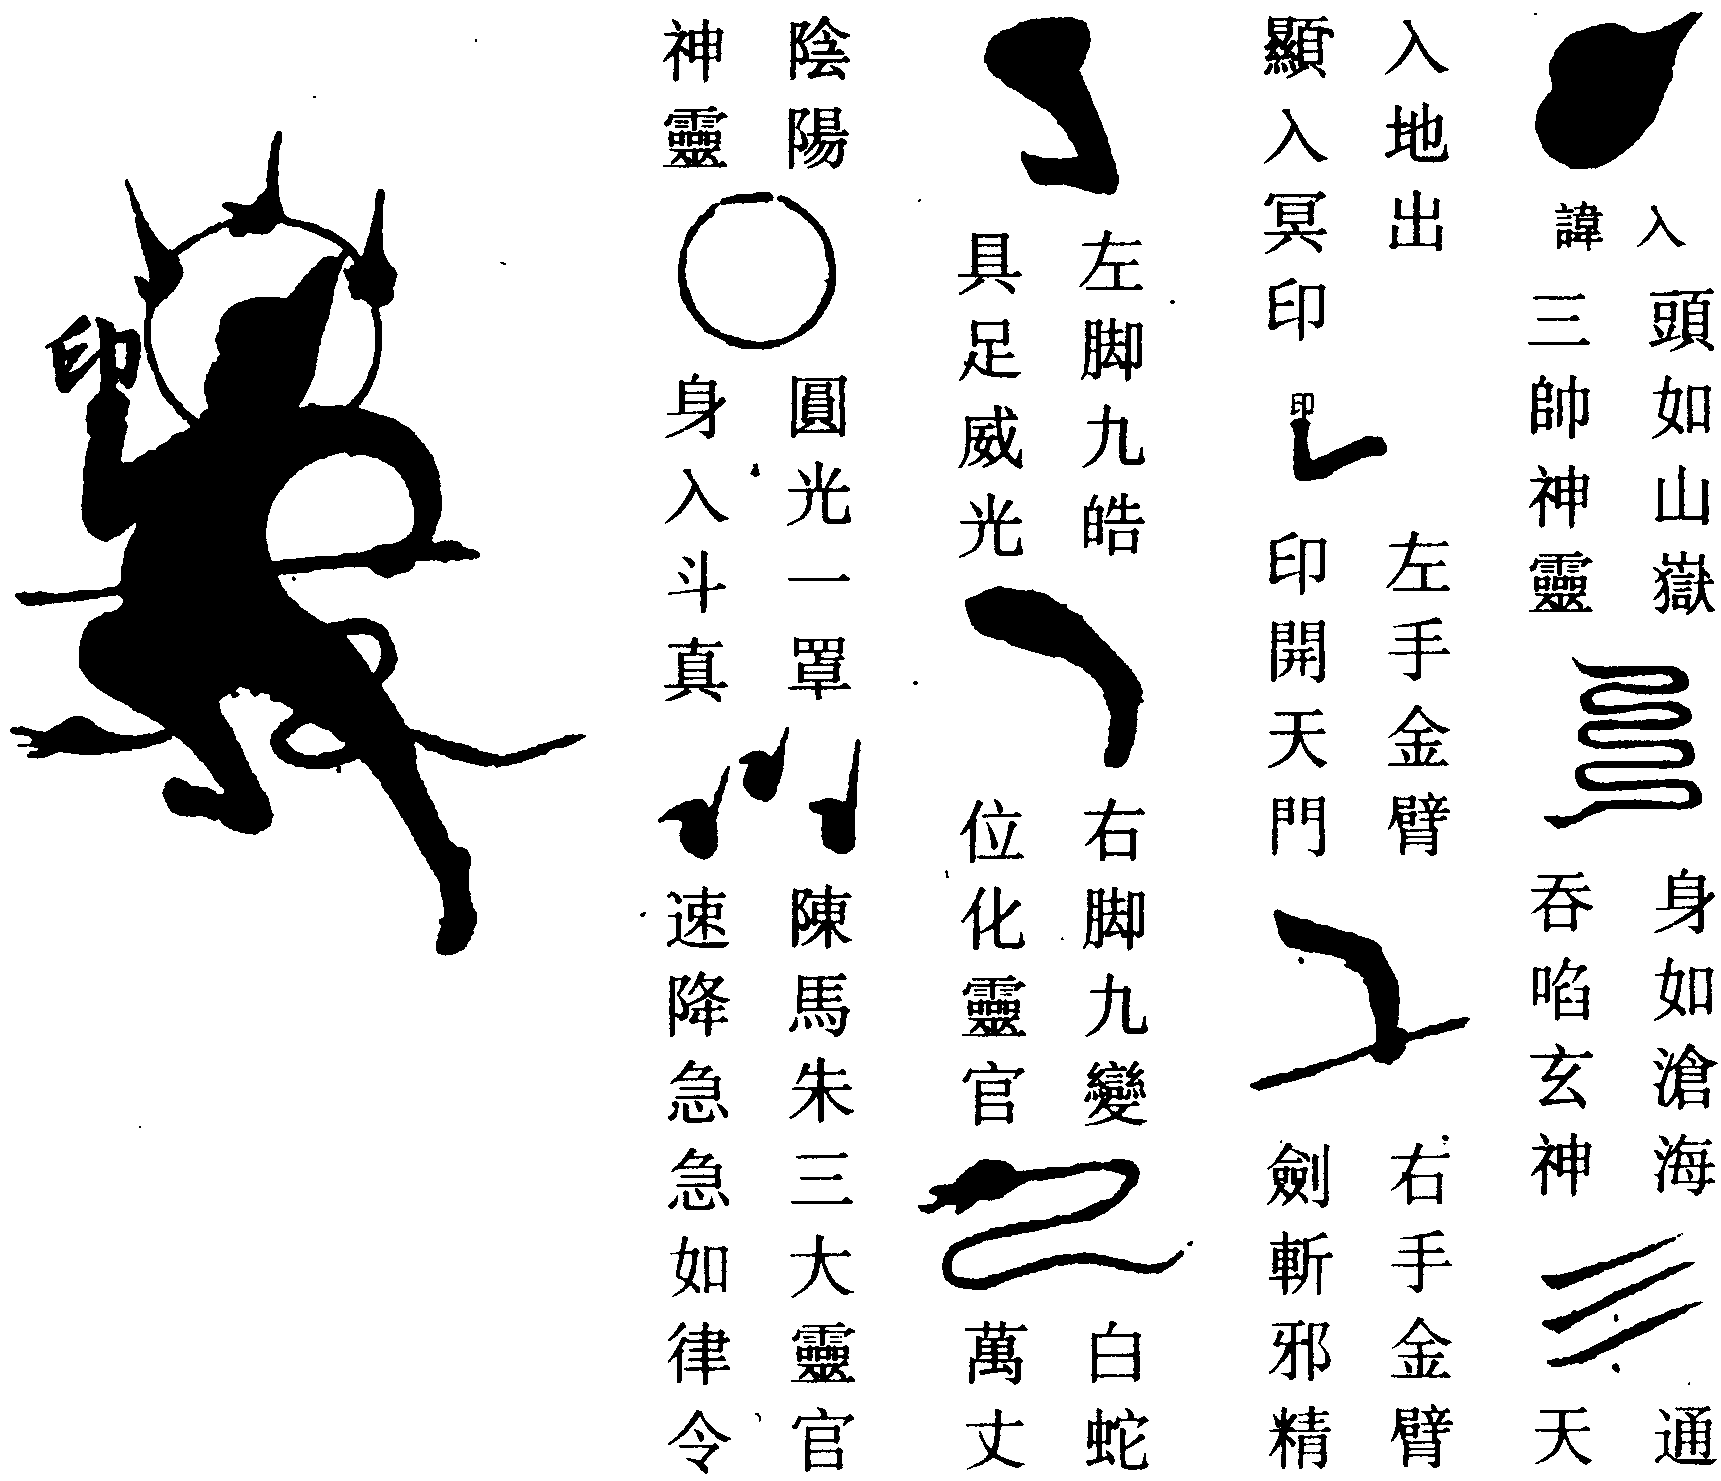 入
諱
頭如山嶽
三帥神靈
身如滄海
吞啗玄神
通
天
入地出
顯入冥印
印
左手金臂
印開天門
右手金臂
劍斬邪精
左脚九皓
具足威光
右脚九變
位化靈官
白蛇
萬丈
陰陽
神靈
圓光一罩
身入斗真
陳馬朱三大靈官
速降急急如律令
印